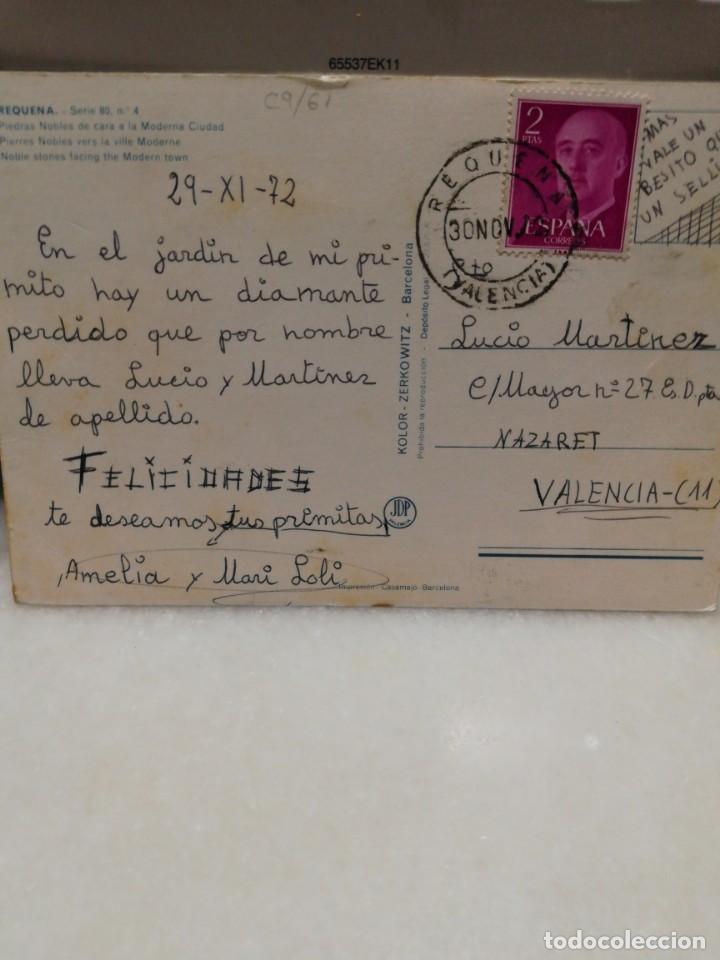 65537EK11
C9/61
REQUENA. - Serie 80, n.° 4
Piedras Nobles de cara a la Moderna Ciudad
Pierres Nobles vers la ville Moderne
Noble stones facing the Modern town
29-XI-72
En el jardin de mi pri-
mito hay un diamante
perdido que por nombre
lleva Lucio y Martinez
de apellido.
FELICIDADES
te deseamos tus primitas
Amelia y Mari Loli
KOLOR - ZERKOWITZ - Barcelona
Prohibida la reproducción - Depósito Legal
JDP
Impresión: Casamajó-Barcelona
2
PTAS
ESPAÑA
CORREOS
REQUENA
30 NOV
(VALENCIA)
MAS
VALE UN
BESITO QU
UN SELL
Lucio Martinez
C/Mayor nº 27 Es. D. pta
NAZARET
VALENCIA-(11)
todocoleccion
todocoleccion.net